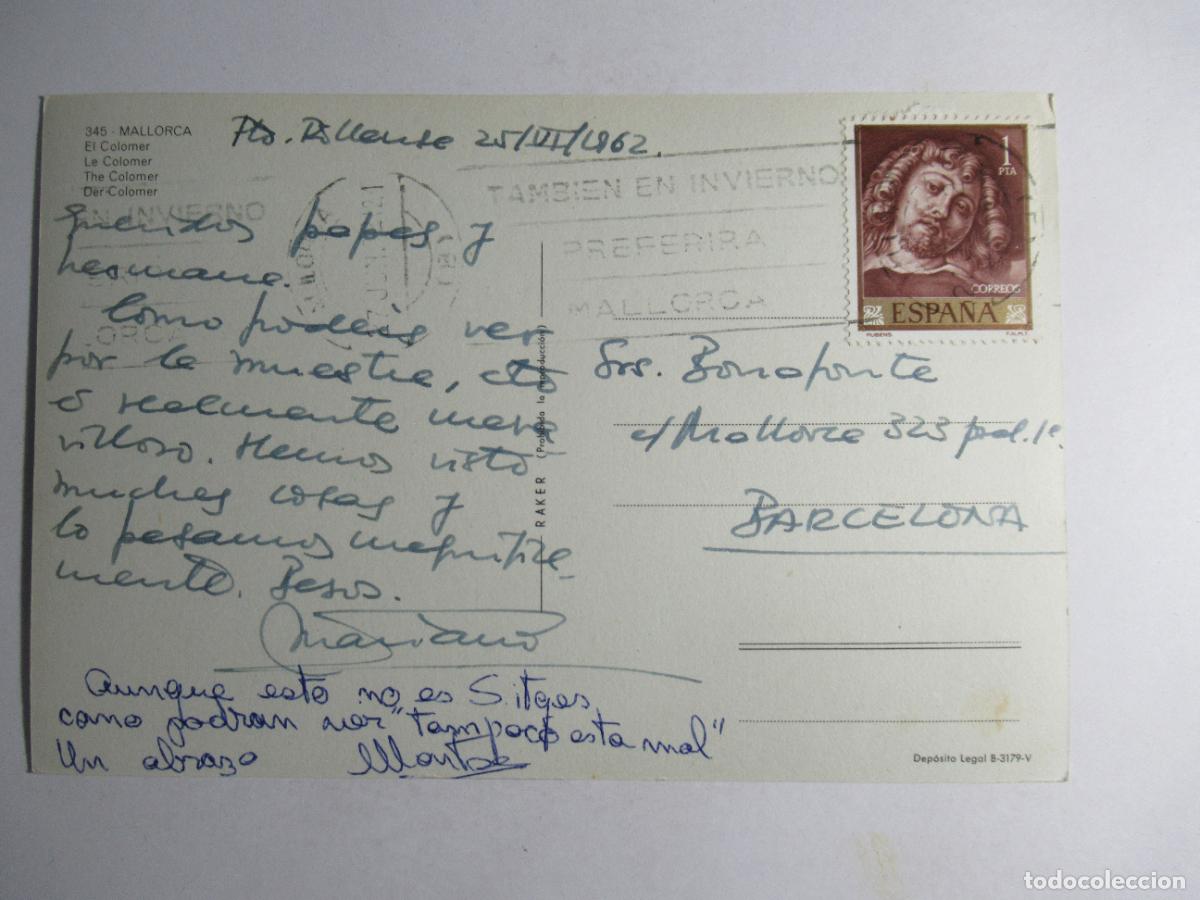 345 - MALLORCA
El Colomer
Le Colomer
The Colomer
Der Colomer
Pto. Pollensa 25/VII/1962.
Queridos papas y
hermana.
Como podeis ver
por la muestra, esto
es realmente mara-
villoso. Hemos visto
muchas cosas y
lo pasamos magnifica-
mente. Besos.
Mariano
Aunque esto no es Sitges,
como podran ver "tampoco esta mal"
Un abrazo Montse
RAKER (Prohibida la reproducción)
EN INVIERNO
ORCA
TAMBIEN EN INVIERNO
PREFERIRA
MALLORCA
1
PTA
CORREOS
ESPAÑA
RUBENS
F.N.M.T.
Srs. Bonafonte
c/ Mallorca 323 pral. 1ª
BARCELONA
Depósito Legal B-3179-V
todocoleccion